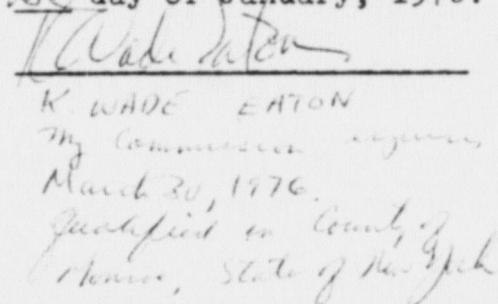 day of January, 197
K Wade Eaton
K. WADE EATON
My Commission expires
March 30, 1976.
Qualified in County of
Monroe, State of New York